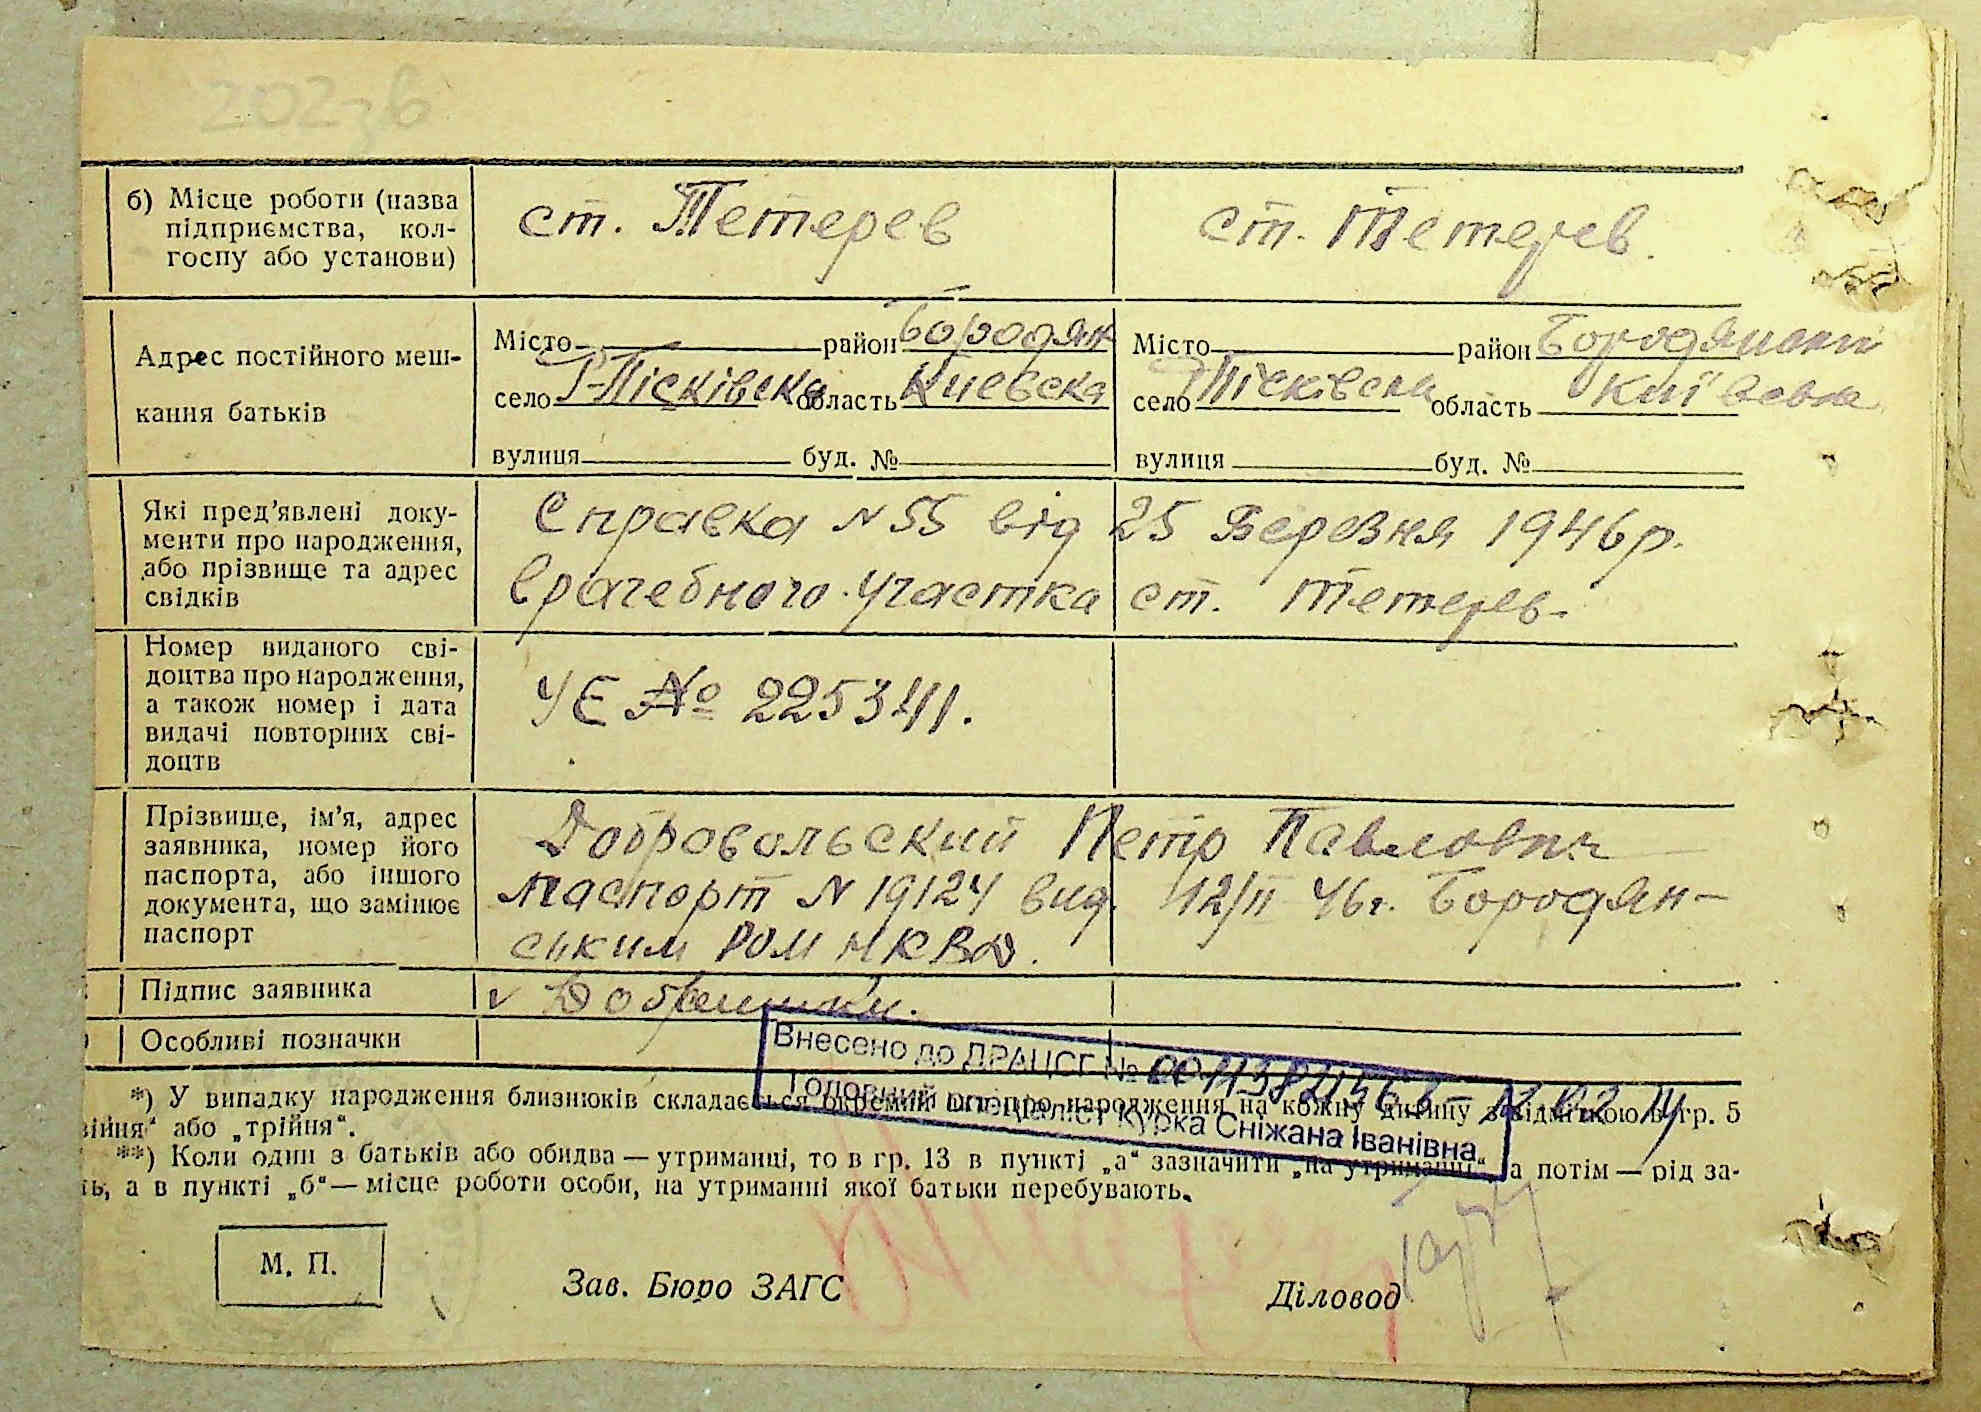 202зв
б) Місце роботи (назва
підприємства, кол-
госпу або установи)
ст. Тетерев
ст. Тетерев.
Адрес постійного меш-
кання батьків
Місто район Бородян
село Р-Пісківска область Киевска
вулиця буд. №
Місто район Бородянский
село Пісківска область Київська
вулиця буд. №
Які пред'явлені доку-
менти про народження,
або прізвище та адрес
свідків
Справка N 55 від 25 Березня 1946 р.
врачебного участка ст. Тетерев.
Номер виданого сві-
доцтва про народження,
а також номер і дата
видачі повторних сві-
доцтв
УЄ № 225341.
Прізвище, ім'я, адрес
заявника, номер його
паспорта, або іншого
документа, що замінює
паспорт
Добровольский Петр Павлович
паспорт N 19124 вид. 12/II 46г. Бородян-
ським РОМ НКВД.
Підпис заявника
Особливі позначки
Внесено до ДРАЦСГ №
Головний спеціаліст Курка Сніжана Іванівна
*) У випадку народження близнюків складається окремий акт про народження на кожну дитину з відміткою в гр. 5
війня" або „трійня".
**) Коли один з батьків або обидва — утриманці, то в гр. 13 в пункті „а" зазначити „на утриманні", а потім — рід за-
ть, а в пункті „б" — місце роботи особи, на утриманні якої батьки перебувають.
М. П.
Зав. Бюро ЗАГС
Діловод